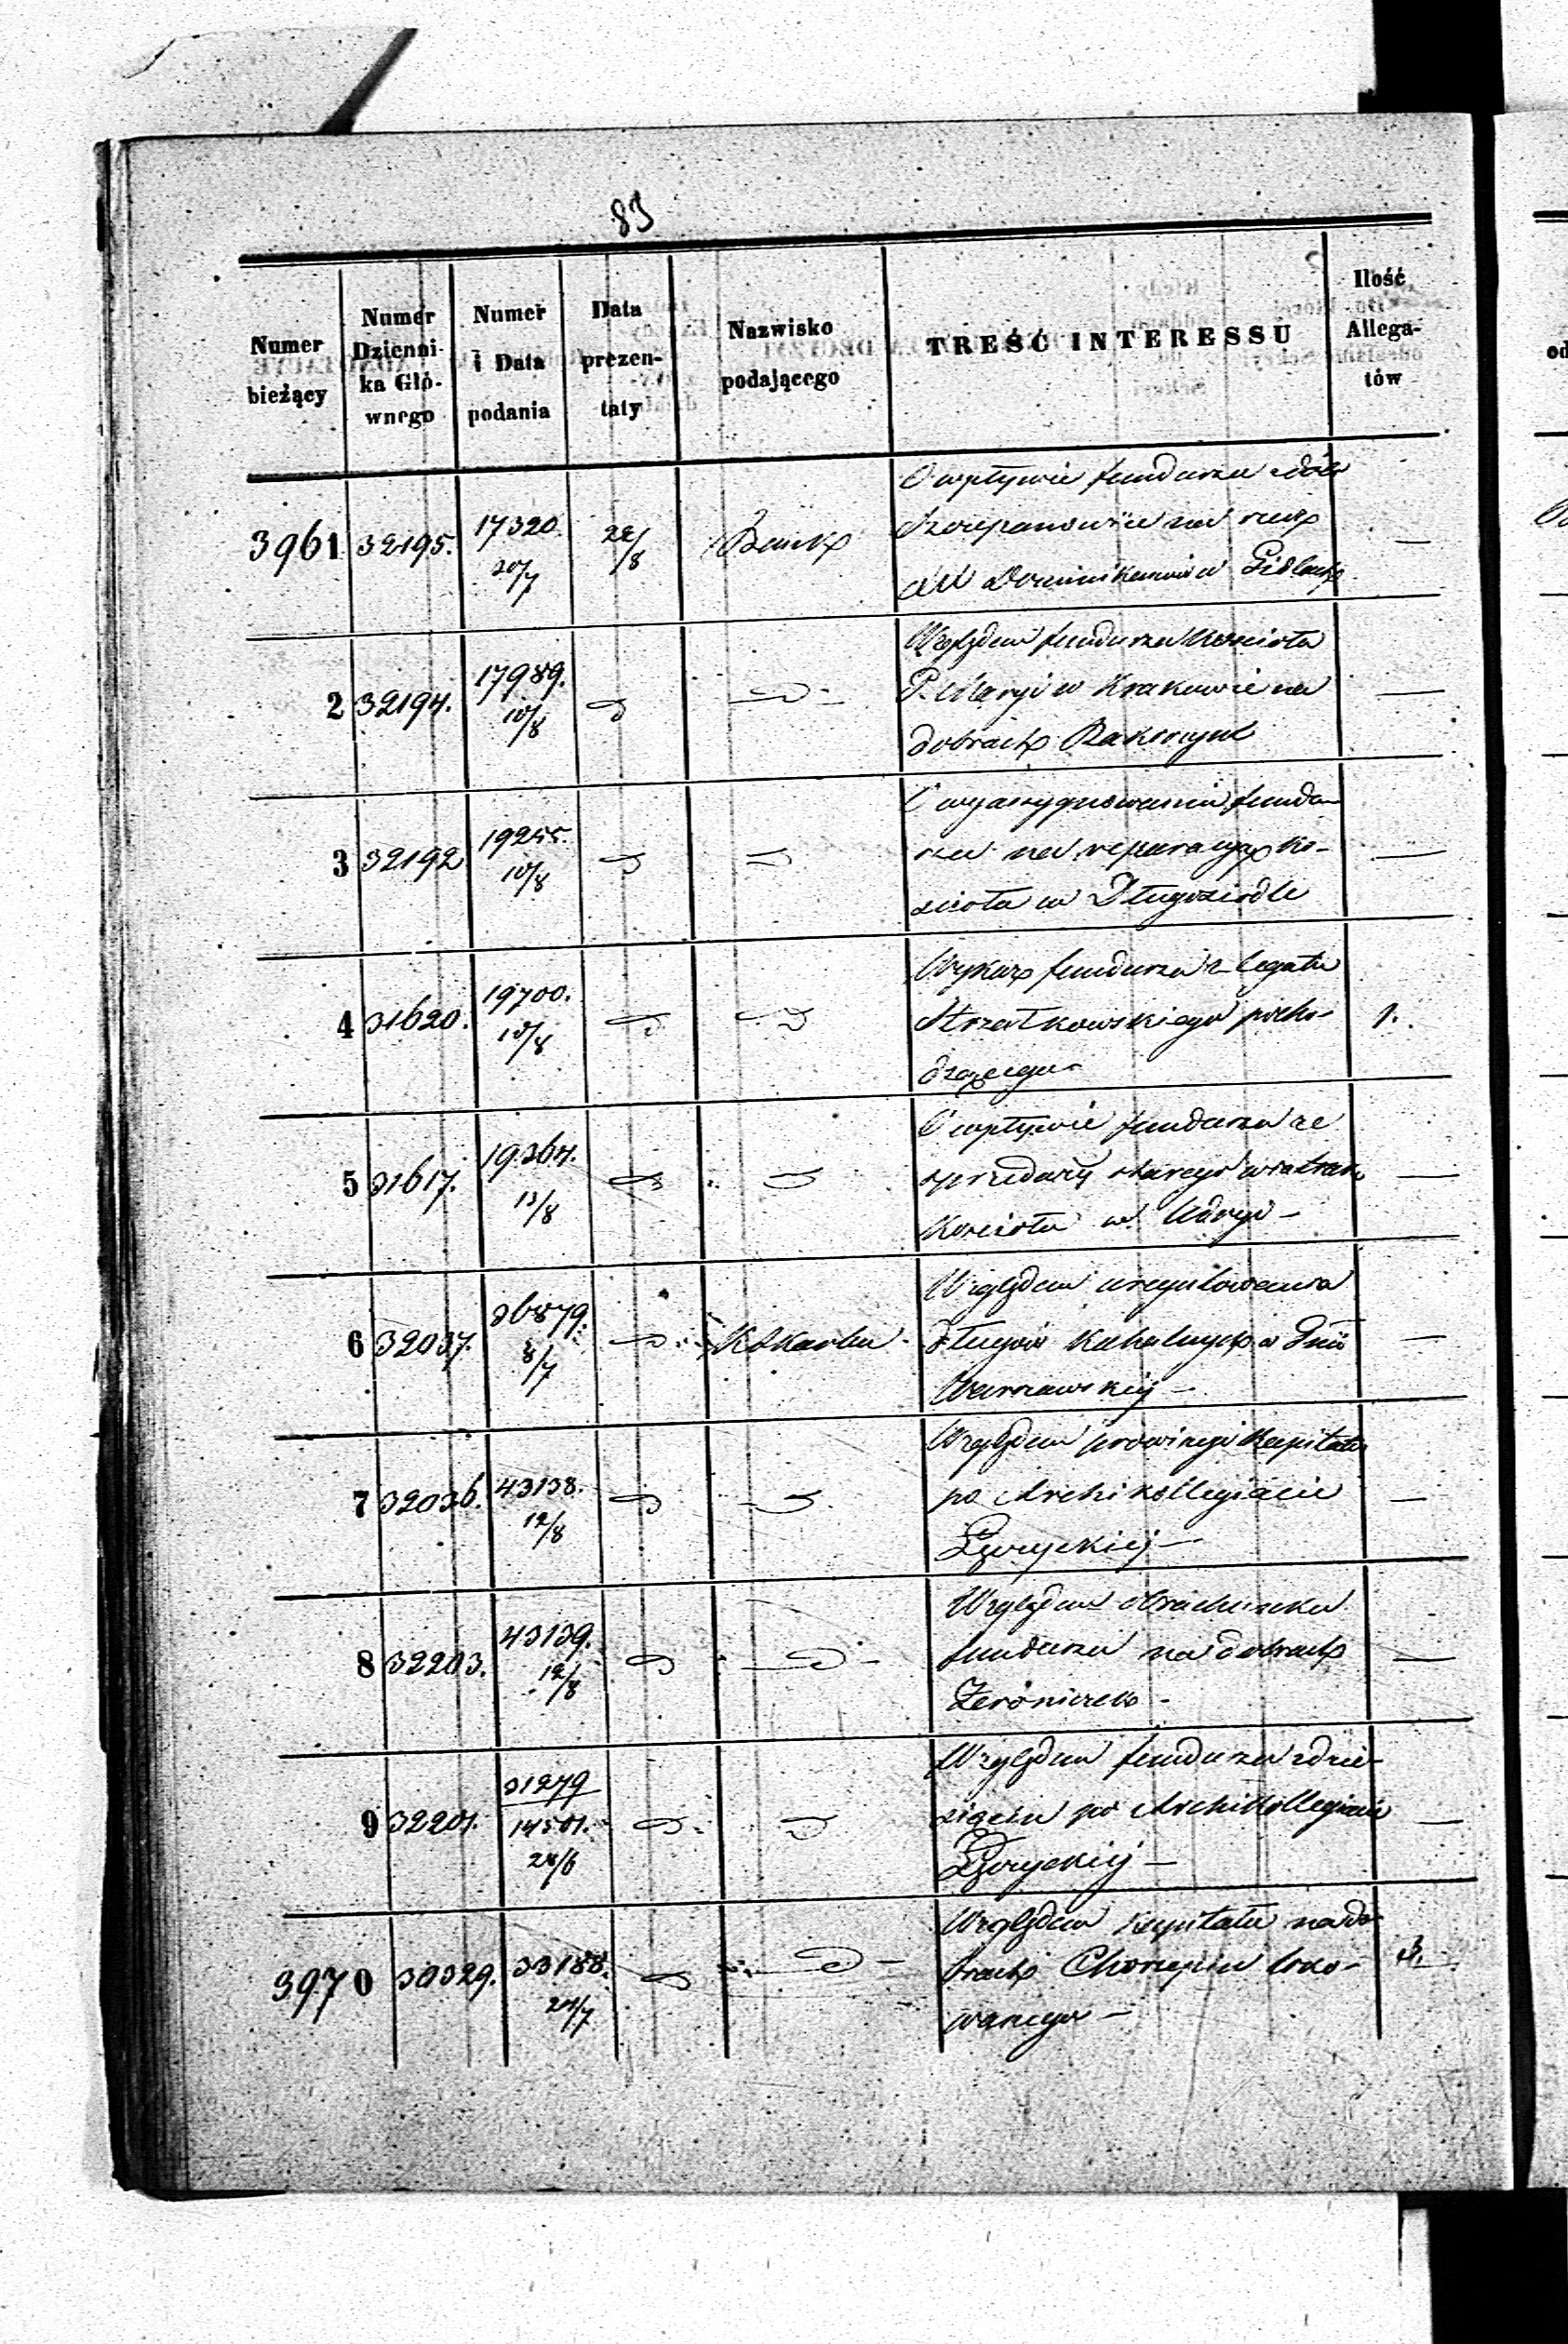 83
Numer bieżący | Numer Dzienni-ka Głó-wnego | Numer i Data podania | Data prezen-taty | Nazwisko podającego | TREŚĆ INTERESSU | Ilość Allega-tów
3961 | 32195. | 17320. 20/7 | 22/8 | Bank | O wpływie funduszu z dóbr
Szczepanowice na rzecz
XX Dominikanów w Gidlach | —
2 | 32194. | 17989. 10/8 | D | D | Względem funduszu Kościoła
P. Maryi w Krakowie na
dobrach | —
3 | 32192 | 19255. 10/8 | D | D | O wyassygnowaniu fundu-
szu na reparacyą ko-
ścioła w Długosiodle | —
4 | 31620. | 19700. 10/8 | D | D | Wykaz funduszu z legatu
Strzałkowskiego pocho-
dzącego | 1.
5 | 31617. | 19364. 13/8 | D | D | O wpływie funduszu ze
sprzedaży starego
Kościoła w | —
6 | 32037. | 36879. 8/7 | D | | Względem uregulowania
długów Kahalnych w Gnii
Warszawskiej — | —
7 | 32036. | 43138. 12/8 | D | D | Względem prowizyi Kapitału
po Archikollegiacie
Łęczyckiej — | —
8 | 32203. | 43139. 12/8 | D | D | Względem obrachunku
funduszu na dobrach
Żeroniczek — | —
9 | 32201. | 31279 14501. 28/6 | D | D | Względem funduszu z dzie-
sięcin po Archikollegiacie
Łęczyckiej — | —
3970 | 30329. | 33188. 24/7 | D | D | Względem kapitału na do-
brach Chorzepin loko-
wanego — | 3.